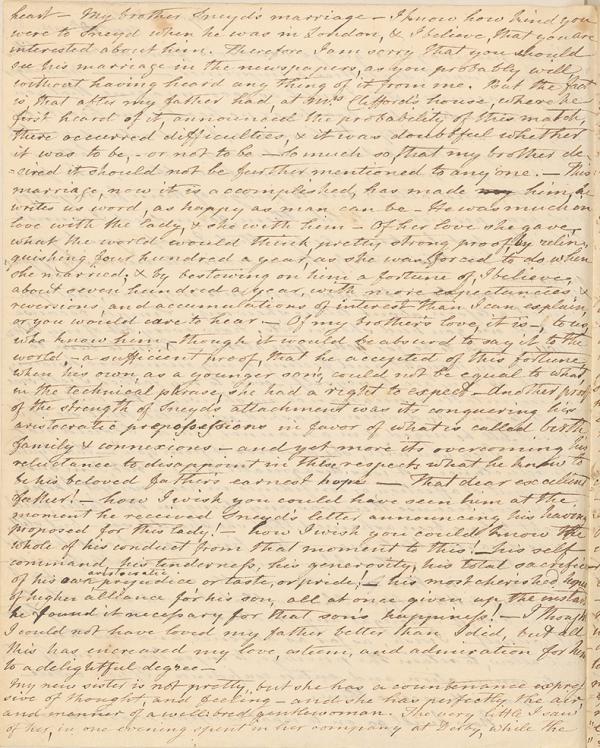 heart – My brother Sneyd's marriage – I know how kind you
were to Sneyd when he was in London, & I believe, that you are
interested about him. Therefore I am sorry that you should
see his marriage in the newspapers, as you probably will,
without having heard any thing of it from me. But the fact
is, that after my father had, at Mrs Clifford's house, where he
first heard of it, announced the probability of this match,
there occurred difficulties, & it was doubtful whether
it was to be, – or not to be – So much so, that my brother de-
=cired it should not be further mentioned to any one. – This
marriage, now it is accomplished, has made him, he
writes us word, as happy as man can be – He was much in
love with the lady, & she with him – Of her love she gave,
what the world would think pretty strong proof by relin
quishing four hundred a year, as she was forced to do when
she married, & by bestowing on him a fortune of, I believe,
about seven hundred a year, with more expectancies, &
reversions, and accumulations of interest than I can explain,
or you would care to hear. – Of my brother's love, it is, to us,
who know him, though it would be absurd to say it to the
world, – a sufficient proof, that he accepted of this fortune,
when his own, as a younger son, could not be equal to what,
in the technical phrase, she had a right to expect – Another proof
of the strength of Sneyds attachment was its conquering his
aristocratic prepossessions in favor of what is called birth
family & connexions – and yet more its overcoming his
reluctance to disappoint in these respects what he knew to
be his beloved fathers earnest hope – That dear excellent
father! – how I wish you could have seen him at the
moment he received Sneyd's letter announcing his having
proposed for this lady! – how I wish you could know the
whole of his conduct from that moment to this! – his self-
command, his tenderness, his generosity, his total sacrifice
of his aristocratic prejudice or taste, or pride; – his most cherished hopes
of higher alliance for his son, all at once given up, the instant
he found it necessary for that son's happiness! – I thought
I could not have loved my father better than I did, but all
this has increased my love, esteem, and admiration for him
to a delightful degree –
My new sister is not pretty, but she has a countenance expres
sive of thought, and feeling – and she has perfectly the air,
and manner of a well bred gentlewoman. The very little I saw
of her, in one evening spent in her company at Derby, while the